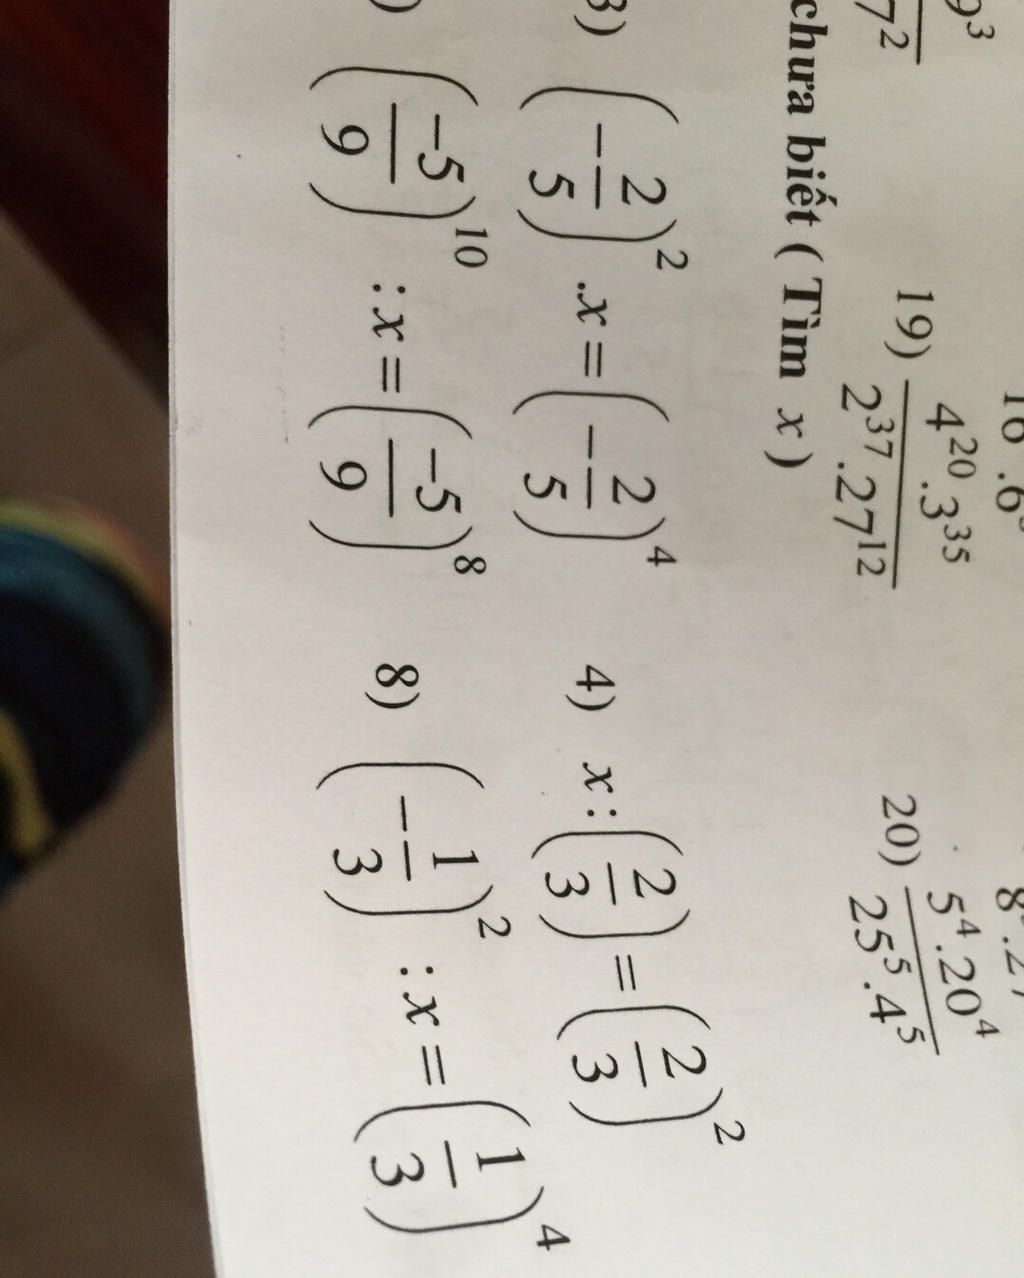 9³ / 7² 16 .6 8 .27
19) (4²⁰.3³⁵)/(2³⁷.27¹²) 20) (5⁴.20⁴)/(25⁵.4⁵)
chưa biết ( Tìm x )
3) (-2/5)² .x = (-2/5)⁴ 4) x : (2/3) = (2/3)²
) (-5/9)¹⁰ : x = (-5/9)⁸ 8) (-1/3)² : x = (1/3)⁴